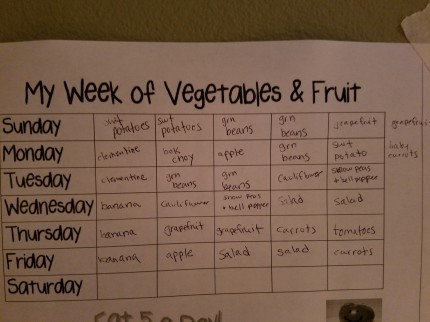 My Week of Vegetables & Fruit
Sunday swt potatoes swt potatoes grn beans grn beans grapefruit grapefruit
Monday clementine bok choy apple grn beans swt potato baby carrots
Tuesday clementine grn beans grn beans cauliflower snow peas + bell pepper
Wednesday banana cauliflower snow peas + bell pepper salad salad
Thursday banana grapefruit grapefruit carrots tomatoes
Friday banana apple salad salad carrots
Saturday
Eat 5 a Day!